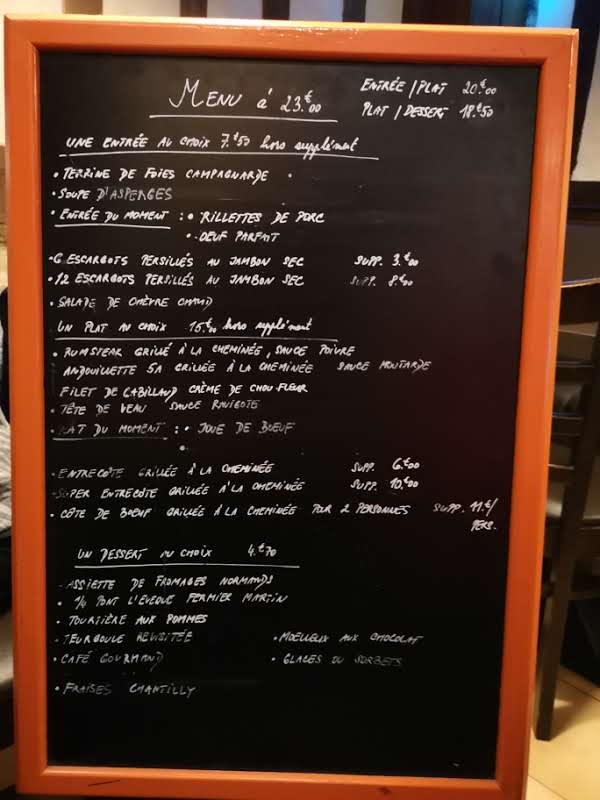 MENU à 23.€00
ENTRÉE / PLAT 20.€00
PLAT / DESSERT 18.€50
UNE ENTRÉE AU CHOIX 7.€50 hors supplément
• TERRINE DE FOIES CAMPAGNARDE •
• SOUPE D'ASPERGES
• ENTRÉE DU MOMENT : • RILLETTES DE PORC
• OEUF PARFAIT
• 6 ESCARGOTS PERSILLÉS AU JAMBON SEC SUPP. 3.€00
• 12 ESCARGOTS PERSILLÉS AU JAMBON SEC SUPP. 8.€00
• SALADE DE CHÈVRE CHAUD
UN PLAT AU CHOIX 15.€00 hors supplément
• RUMSTEAK GRILLÉ À LA CHEMINÉE, SAUCE POIVRE
ANDOUILLETTE 5A GRILLÉE À LA CHEMINÉE SAUCE MOUTARDE
FILET DE CABILLAUD CRÈME DE CHOU FLEUR
• TÊTE DE VEAU SAUCE RAVIGOTE
• PLAT DU MOMENT : • JOUE DE BOEUF
•
• ENTRECÔTE GRILLÉE À LA CHEMINÉE SUPP. 6.€00
• SUPER ENTRECÔTE GRILLÉE À LA CHEMINÉE SUPP. 10.€00
• CÔTE DE BOEUF GRILLÉE À LA CHEMINÉE POUR 2 PERSONNES SUPP. 11.€/
PERS.
UN DESSERT AU CHOIX 4.€70
- ASSIETTE DE FROMAGES NORMANDS
• 1/4 PONT L'EVEQUE FERMIER MARTIN
• TOURTIÈRE AUX POMMES
• TEURGOULE REVISITÉE
• MOELLEUX AUX CHOCOLAT
• CAFÉ GOURMAND
• GLACES OU SORBETS
• FRAISES CHANTILLY